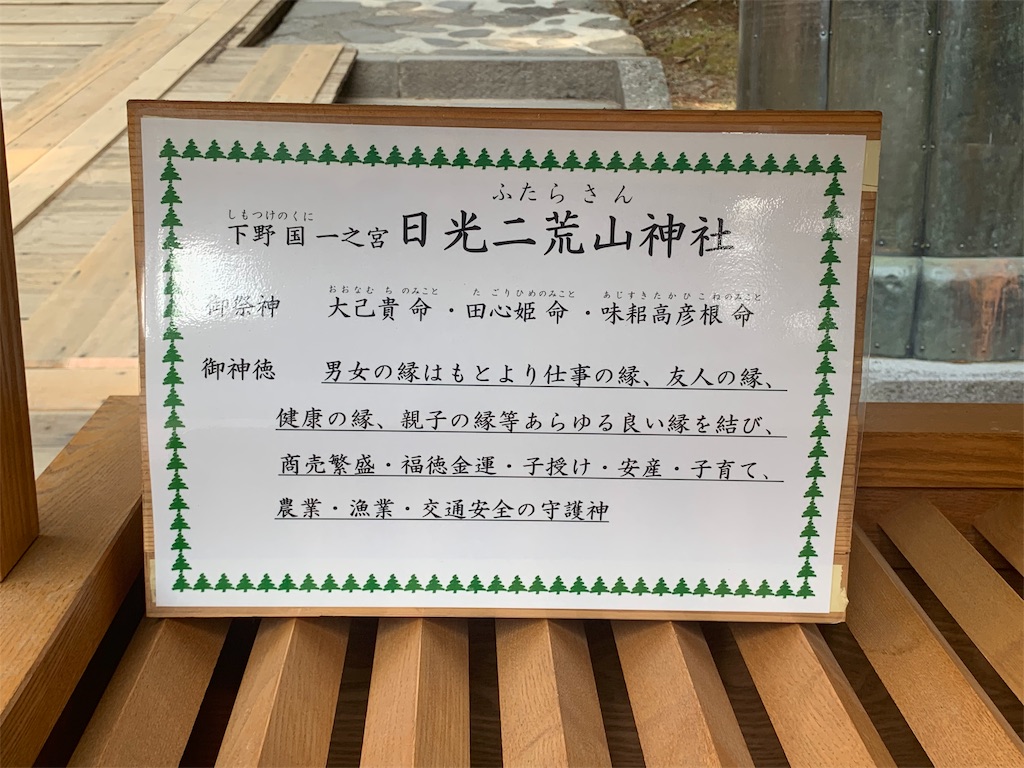 ふたらさん
しもつけのくに
下野国一之宮 日光二荒山神社
おおなむちのみこと たごりひめのみこと あじすきたかひこねのみこと
御祭神 大己貴命・田心姫命・味耜高彦根命
御神徳 男女の縁はもとより仕事の縁、友人の縁、
健康の縁、親子の縁等あらゆる良い縁を結び、
商売繁盛・福徳金運・子授け・安産・子育て、
農業・漁業・交通安全の守護神